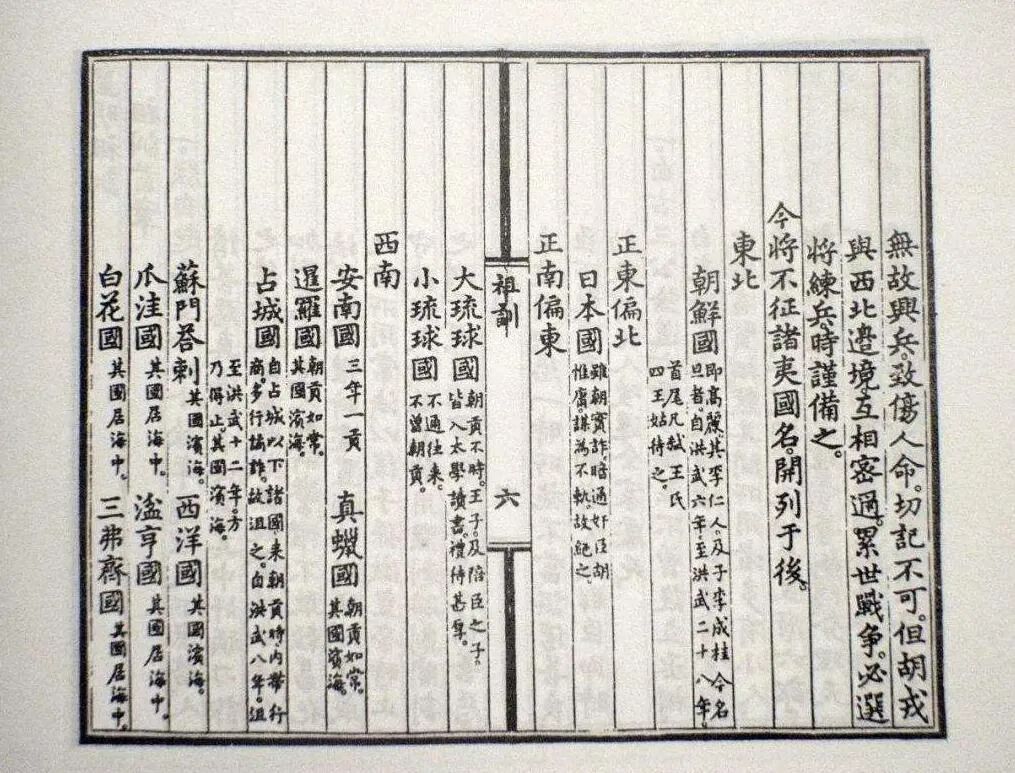 無故興兵。致傷人命。切記不可。但胡戎
與西北邊境。互相密邇。累世戰爭。必選
將練兵。時謹備之。
今將不征諸夷國名。開列于後。
東北
朝鮮國 即高麗。其李仁人。及子李成桂今名
旦者。自洪武六年。至洪武二十八年。
首尾凡弒王氏
四王。姑待之。
正東偏北
日本國 雖朝實詐。暗通奸臣胡
惟庸。謀為不軌。故絕之。
正南偏東
大琉球國 朝貢不時。王子。及陪臣之子。
皆入太學讀書。禮待甚厚。
小琉球國 不通往來。
不曾朝貢。
西南
安南國 三年一貢
真蠟國 朝貢如常。
其國濱海。
暹羅國 朝貢如常。
其國濱海。
占城國 自占城以下諸國。來朝貢時。內帶行
商。多行譎詐。故沮之。自洪武八年。沮
至洪武十二年。方
乃得止。其國濱海。
蘇門荅剌 其國濱海。
西洋國 其國濱海。
爪洼國 其國居海中。
湓亨國 其國居海中。
白花國 其國居海中。
三弗齊國 其國居海中。
祖訓
六